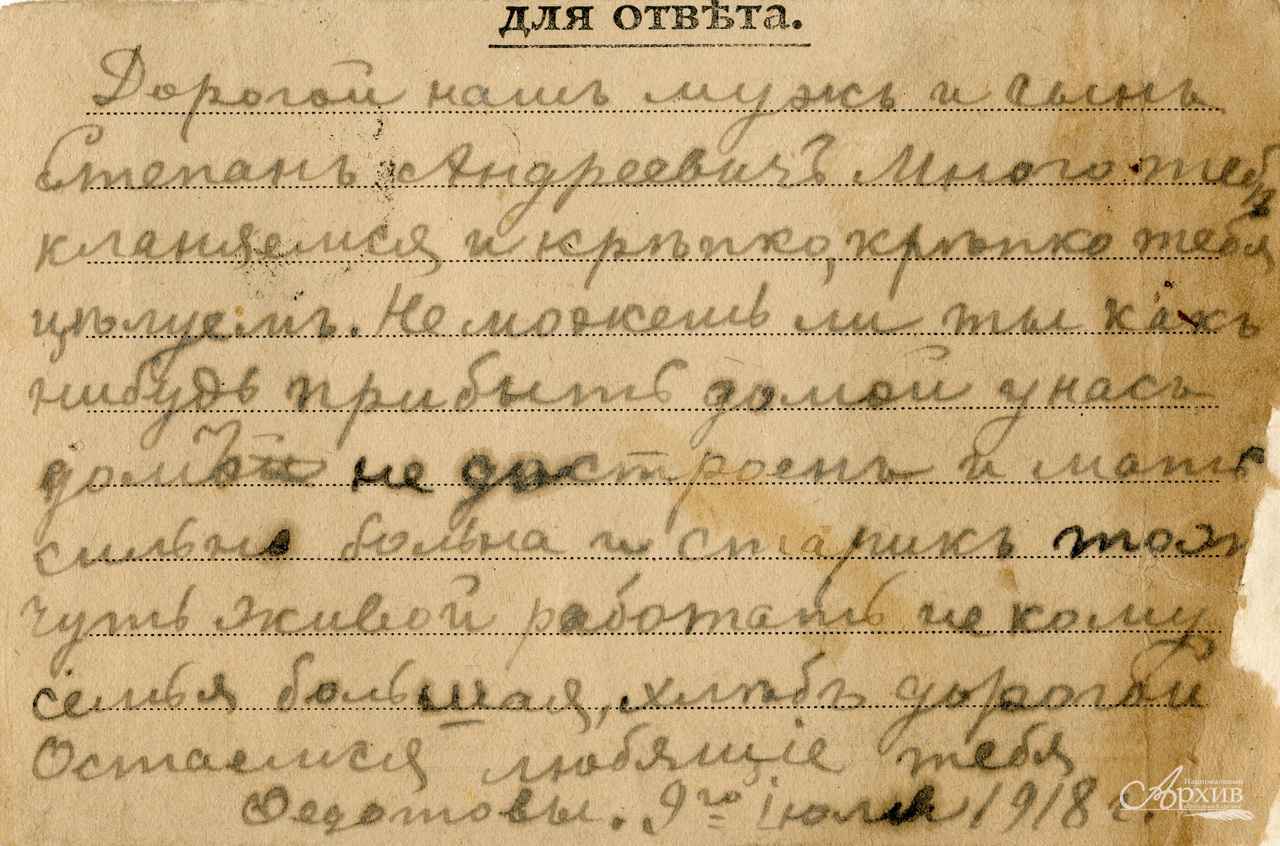 для отвѣта.
Дорогой нашъ мужъ и сынъ
Степанъ Андреевичъ Много тебѣ
кланяемся и крѣпко, крѣпко тебя
цѣлуемъ. Не можешь ли ты какъ
нибудь прибыть домой у насъ
домъ не достроенъ и мать
сильно больна и старикъ тоже
чуть живой работать не кому
семья большая, хлѣбъ дорогой
Остаемся любящіе тебя
Федотовы. 9го Іюля 1918 г.
Национальный
Архив